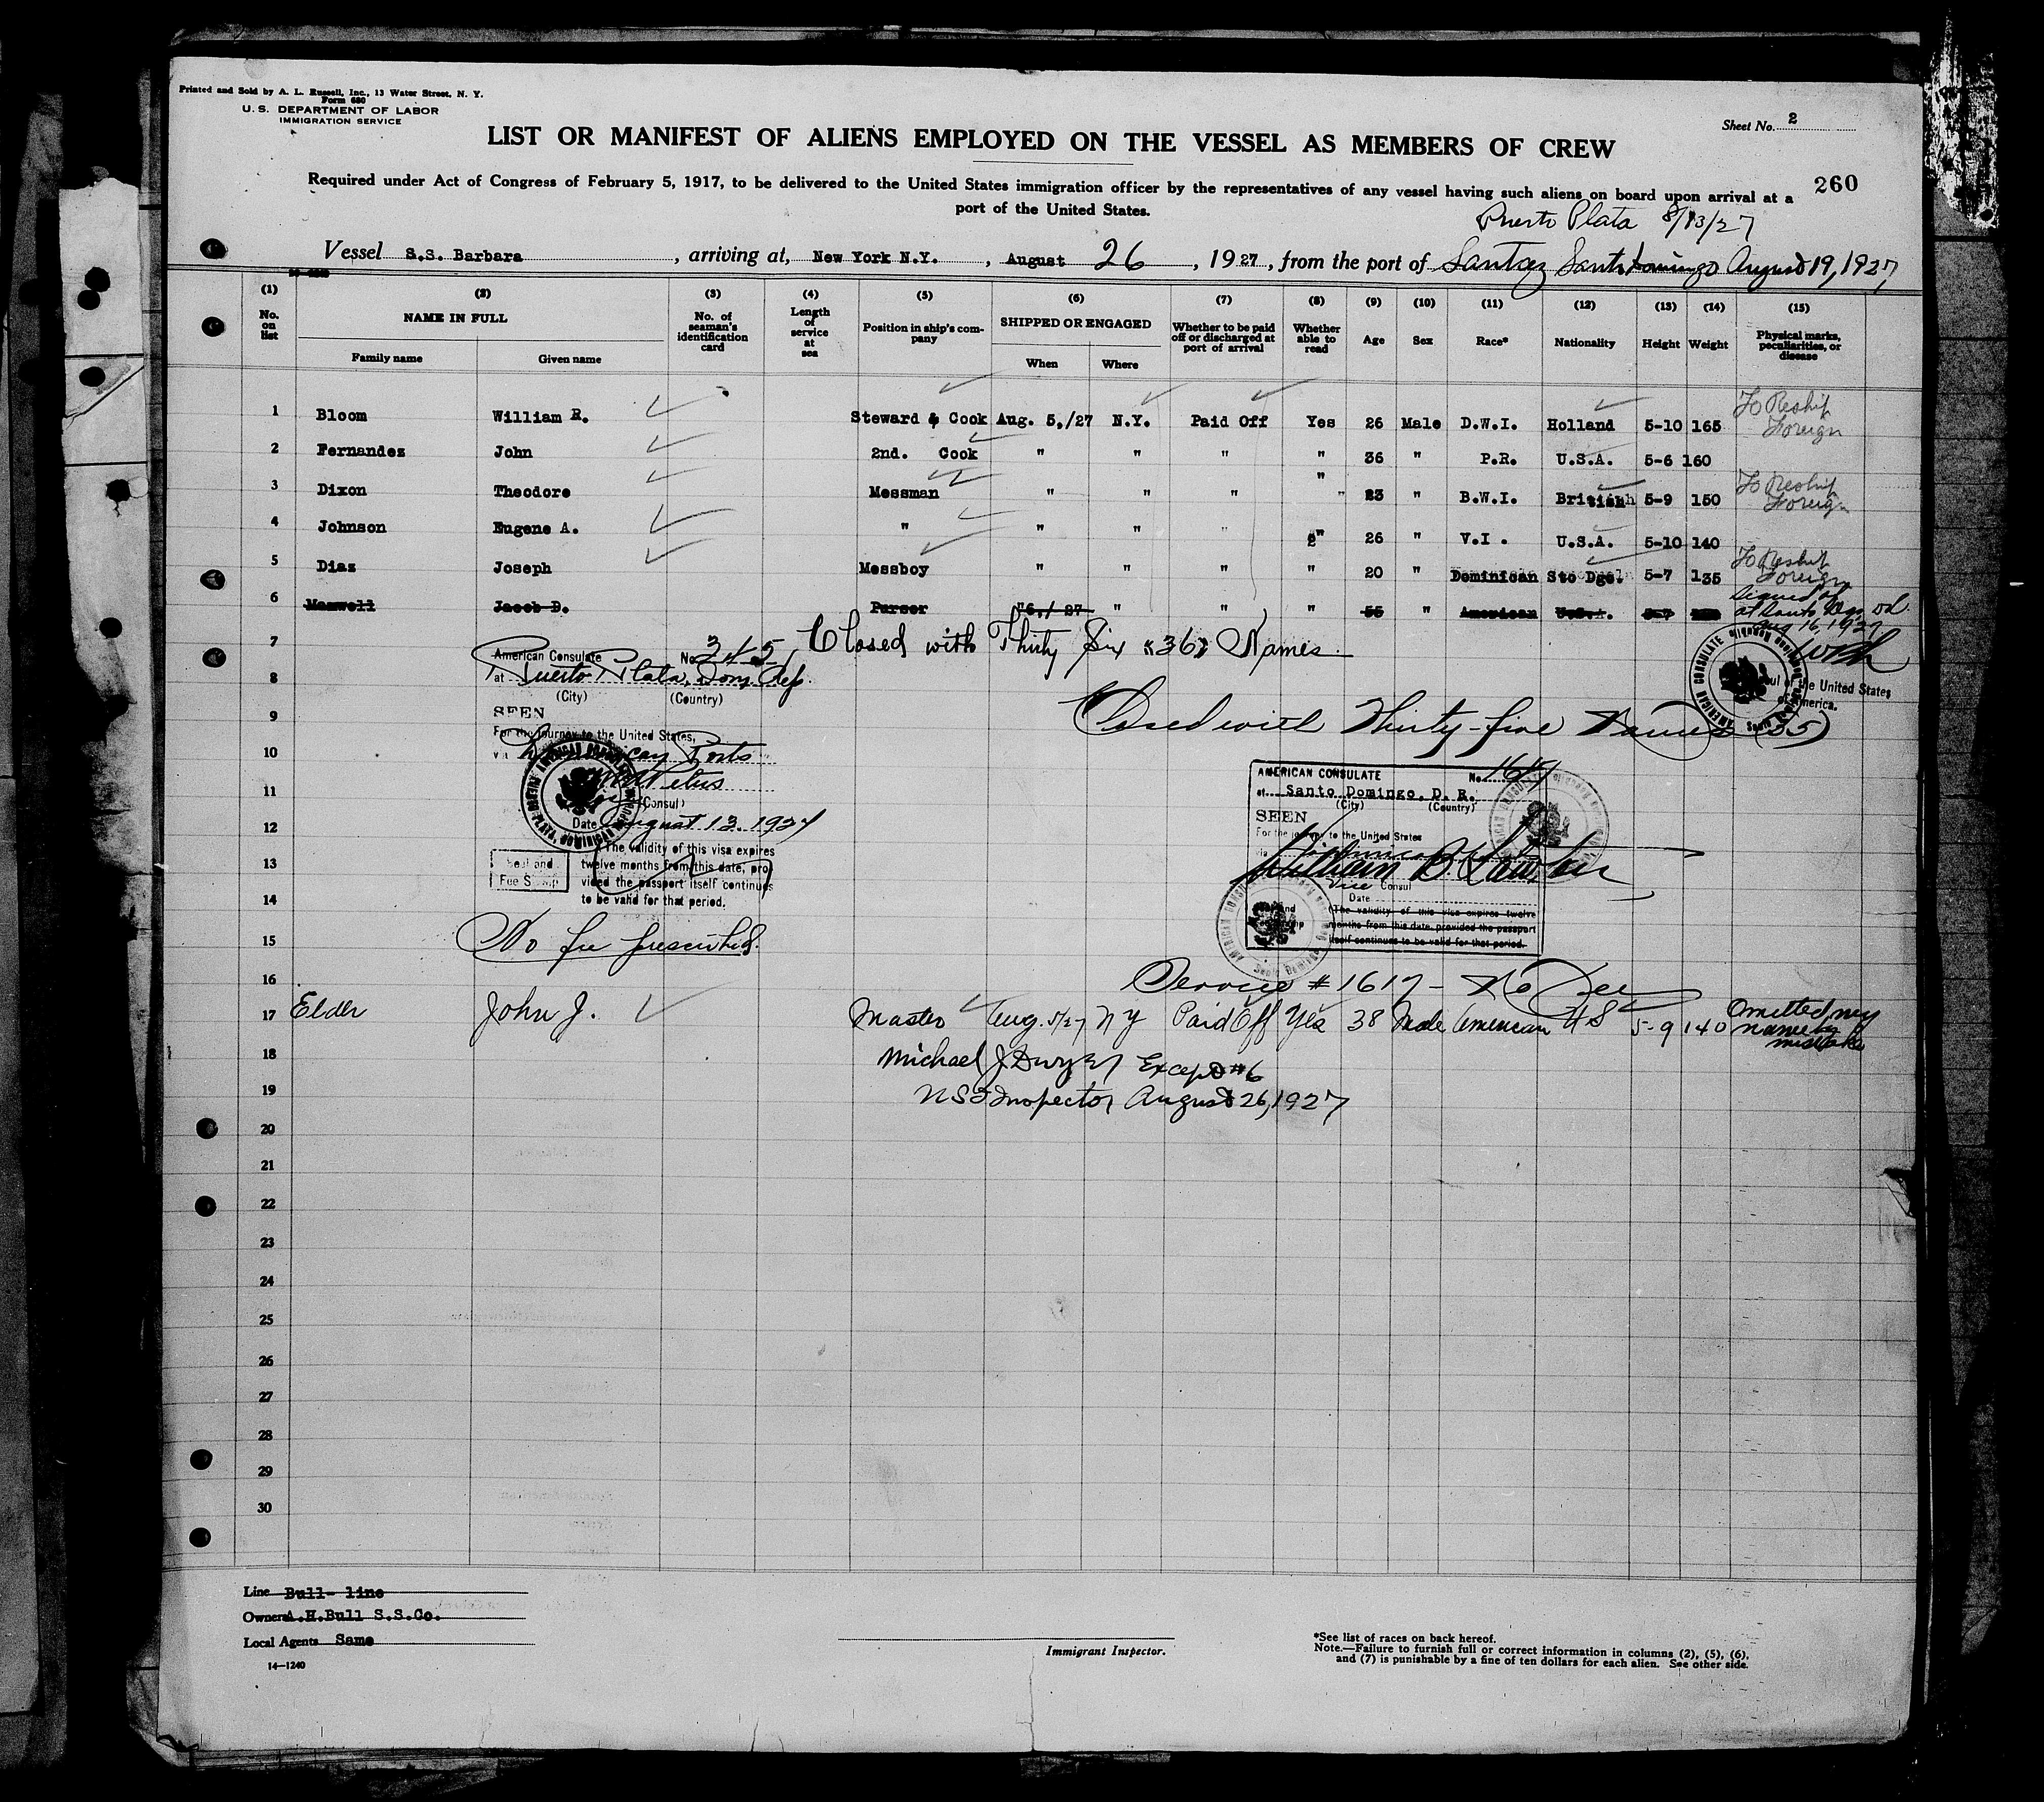 Printed and Sold by A. L. Russell, Inc., 13 Water Street, N. Y.
Form 680
U. S. DEPARTMENT OF LABOR
IMMIGRATION SERVICE
Sheet No. 2
LIST OR MANIFEST OF ALIENS EMPLOYED ON THE VESSEL AS MEMBERS OF CREW
260
Required under Act of Congress of February 5, 1917, to be delivered to the United States immigration officer by the representatives of any vessel having such aliens on board upon arrival at a
port of the United States.
Puerto Plata 8/13/27
Vessel S.S. Barbara, arriving at, New York N.Y., August 26, 1927, from the port of Santo Domingo August 19, 1927,
(1) (2) (3) (4) (5) (6) (7) (8) (9) (10) (11) (12) (13) (14) (15)
No. on list NAME IN FULL Family name Given name No. of seaman's identification card Length of service at sea Position in ship's company SHIPPED OR ENGAGED When Where Whether to be paid off or discharged at port of arrival Whether able to read Age Sex Race* Nationality Height Weight Physical marks, peculiarities, or disease
1 Bloom William R. Steward & Cook Aug. 5,/27 N.Y. Paid Off Yes 26 Male D.W.I. Holland 5-10 165 To Reship Foreign
2 Fernandez John 2nd. Cook " " " " 36 " P.R. U.S.A. 5-6 160
3 Dixon Theodore Messman " " " " 23 " B.W.I. British 5-9 150 To Reship Foreign
4 Johnson Eugene A. " " " " " 26 " V.I. U.S.A. 5-10 140
5 Diaz Joseph Messboy " " " " 20 " Dominican Sto Dgo. 5-7 135 To Reship Foreign
6 Maxwell Jacob D. Purser "6,/ 27 " " " 55 " American U.S.A. 5-7
Signed off
at Santo Dgo,
Aug 16, 1927
7 Closed with Thirty Six (36) Names
American Consulate No. 345
8 at Puerto Plata, Dom. Rep.
(City) (Country)
Consul of the United States
of America.
AMERICAN CONSULATE
9 SEEN
Closed with Thirty-five Names (35)
For the journey to the United States,
10 via Ports
11 (Consul)
12 Date August 13, 1927
AMERICAN CONSULATE No. 1617
at Santo Domingo, D. R.
(City) (Country)
SEEN
For the journey to the United States
via
13 Seal and Fee Stamp
(The validity of this visa expires
twelve months from this date, pro-
vided the passport itself continues
14 to be valid for that period.
Vice Consul
Date
(The validity of this visa expires twelve
months from this date, provided the passport
itself continues to be valid for that period.
15 No fee prescribed.
16 Service # 1617 - No Fee
17 Elder John J. Master Aug. 5/27 N Y Paid Off Yes 38 Male American U S 5-9 140 Omitted my name by mistake
18 Michael J Dwyer Except #6
19 Inspector August 26, 1927
20
21
22
23
24
25
26
27
28
29
30
Line Bull- line
Owners A.H.Bull S.S.Co.
Local Agents Same
14—1240
Immigrant Inspector.
*See list of races on back hereof.
Note.—Failure to furnish full or correct information in columns (2), (5), (6),
and (7) is punishable by a fine of ten dollars for each alien. See other side.